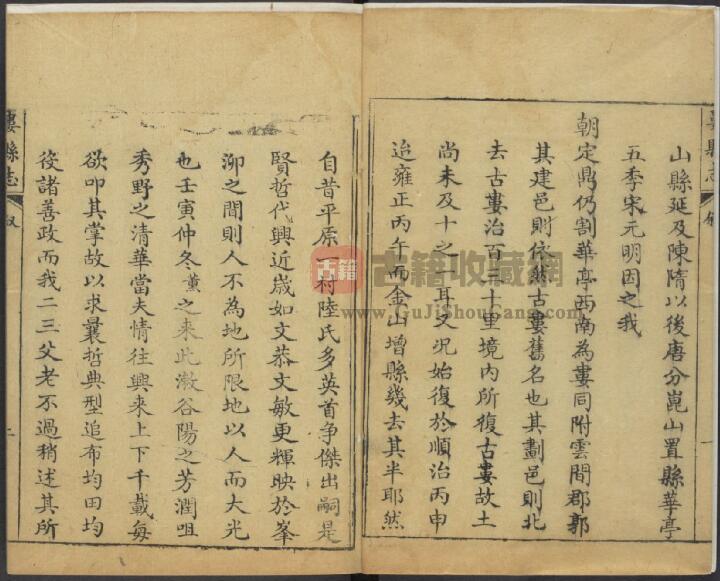 山縣延及陳隋以後唐分崑山置縣華亭
五季宋元明因之我
朝定鼎仍割華亭西南為婁同附雲間郡郭
其建邑則依然古婁舊名也其劃邑則北
去古婁治百二十里境内所復古婁故土
尚未及十之一耳又况始復於順治丙申
迨雍正丙午而金山增縣幾去其半耶然
婁縣志
自昔平原一村陸氏多英首争傑出嗣是
賢哲代興近歲如文恭文敏更輝映於峯
泖之間則人不為地所限地以人而大光
也壬寅仲冬薰之来此漱谷陽之芳潤咀
秀野之清華當夫情往興来上下千載每
欲叩其掌故以求曩哲典型追布均田均
役諸善政而我二三父老不過稍述其所
婁縣志
叙
古籍
古籍收藏網
www.GuJiShouCang.com